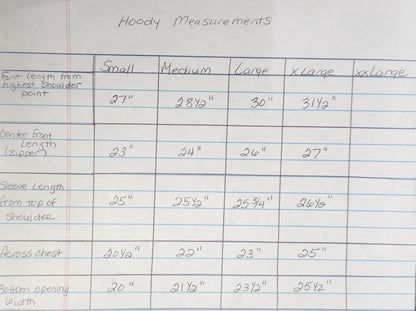 Hoody Measurements
Small Medium Large XLarge XXLarge
Font length from
highest shoulder
point
27" 28 1/2" 30" 31 1/2"
Center Font
Length
(Zipper)
23" 24" 26" 27"
Sleeve Length
from top of
shoulder
25" 25 1/2" 25 3/4" 26 1/2"
Across chest
20 1/2" 22" 23" 25"
Bottom opening
width
20" 21 1/2" 23 1/2" 25 1/2"